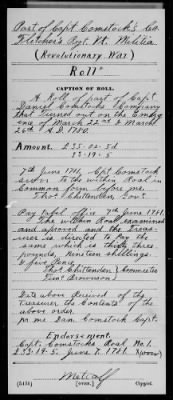 Part of Capt. Comstock's Co.
Fletcher's Regt. Vt. Militia
(Revolutionary War)
Roll
CAPTION OF ROLL.
A Roll of part of Capt
Daniel Comstocks Company
that Turned out on the
ence of March 22nd & March
26th A.D. 1780.
Amount. £35-02-5d
33-19-5
7th June 1781, Capt Comstock
to the within Roal in
Common form before me.
Thos Chittenden
Pay office 7th June 1781.
The within Roal examined
and aproved and the Treas-
urer is directed to pay the
same which is thirty three
pounds, Nineteen shillings.
& five Pence
Thos Chittenden
Timo Brownson
Date above Received of the
Treasurer the Contents of the
above order.
pr me Dan. Comstock Capt.
Endorsement.
Capt. Comstocks Roal No. 1.
£33.19.5. June 7. 1781.
Metcalf
(5454) [OVER.] Copyist.